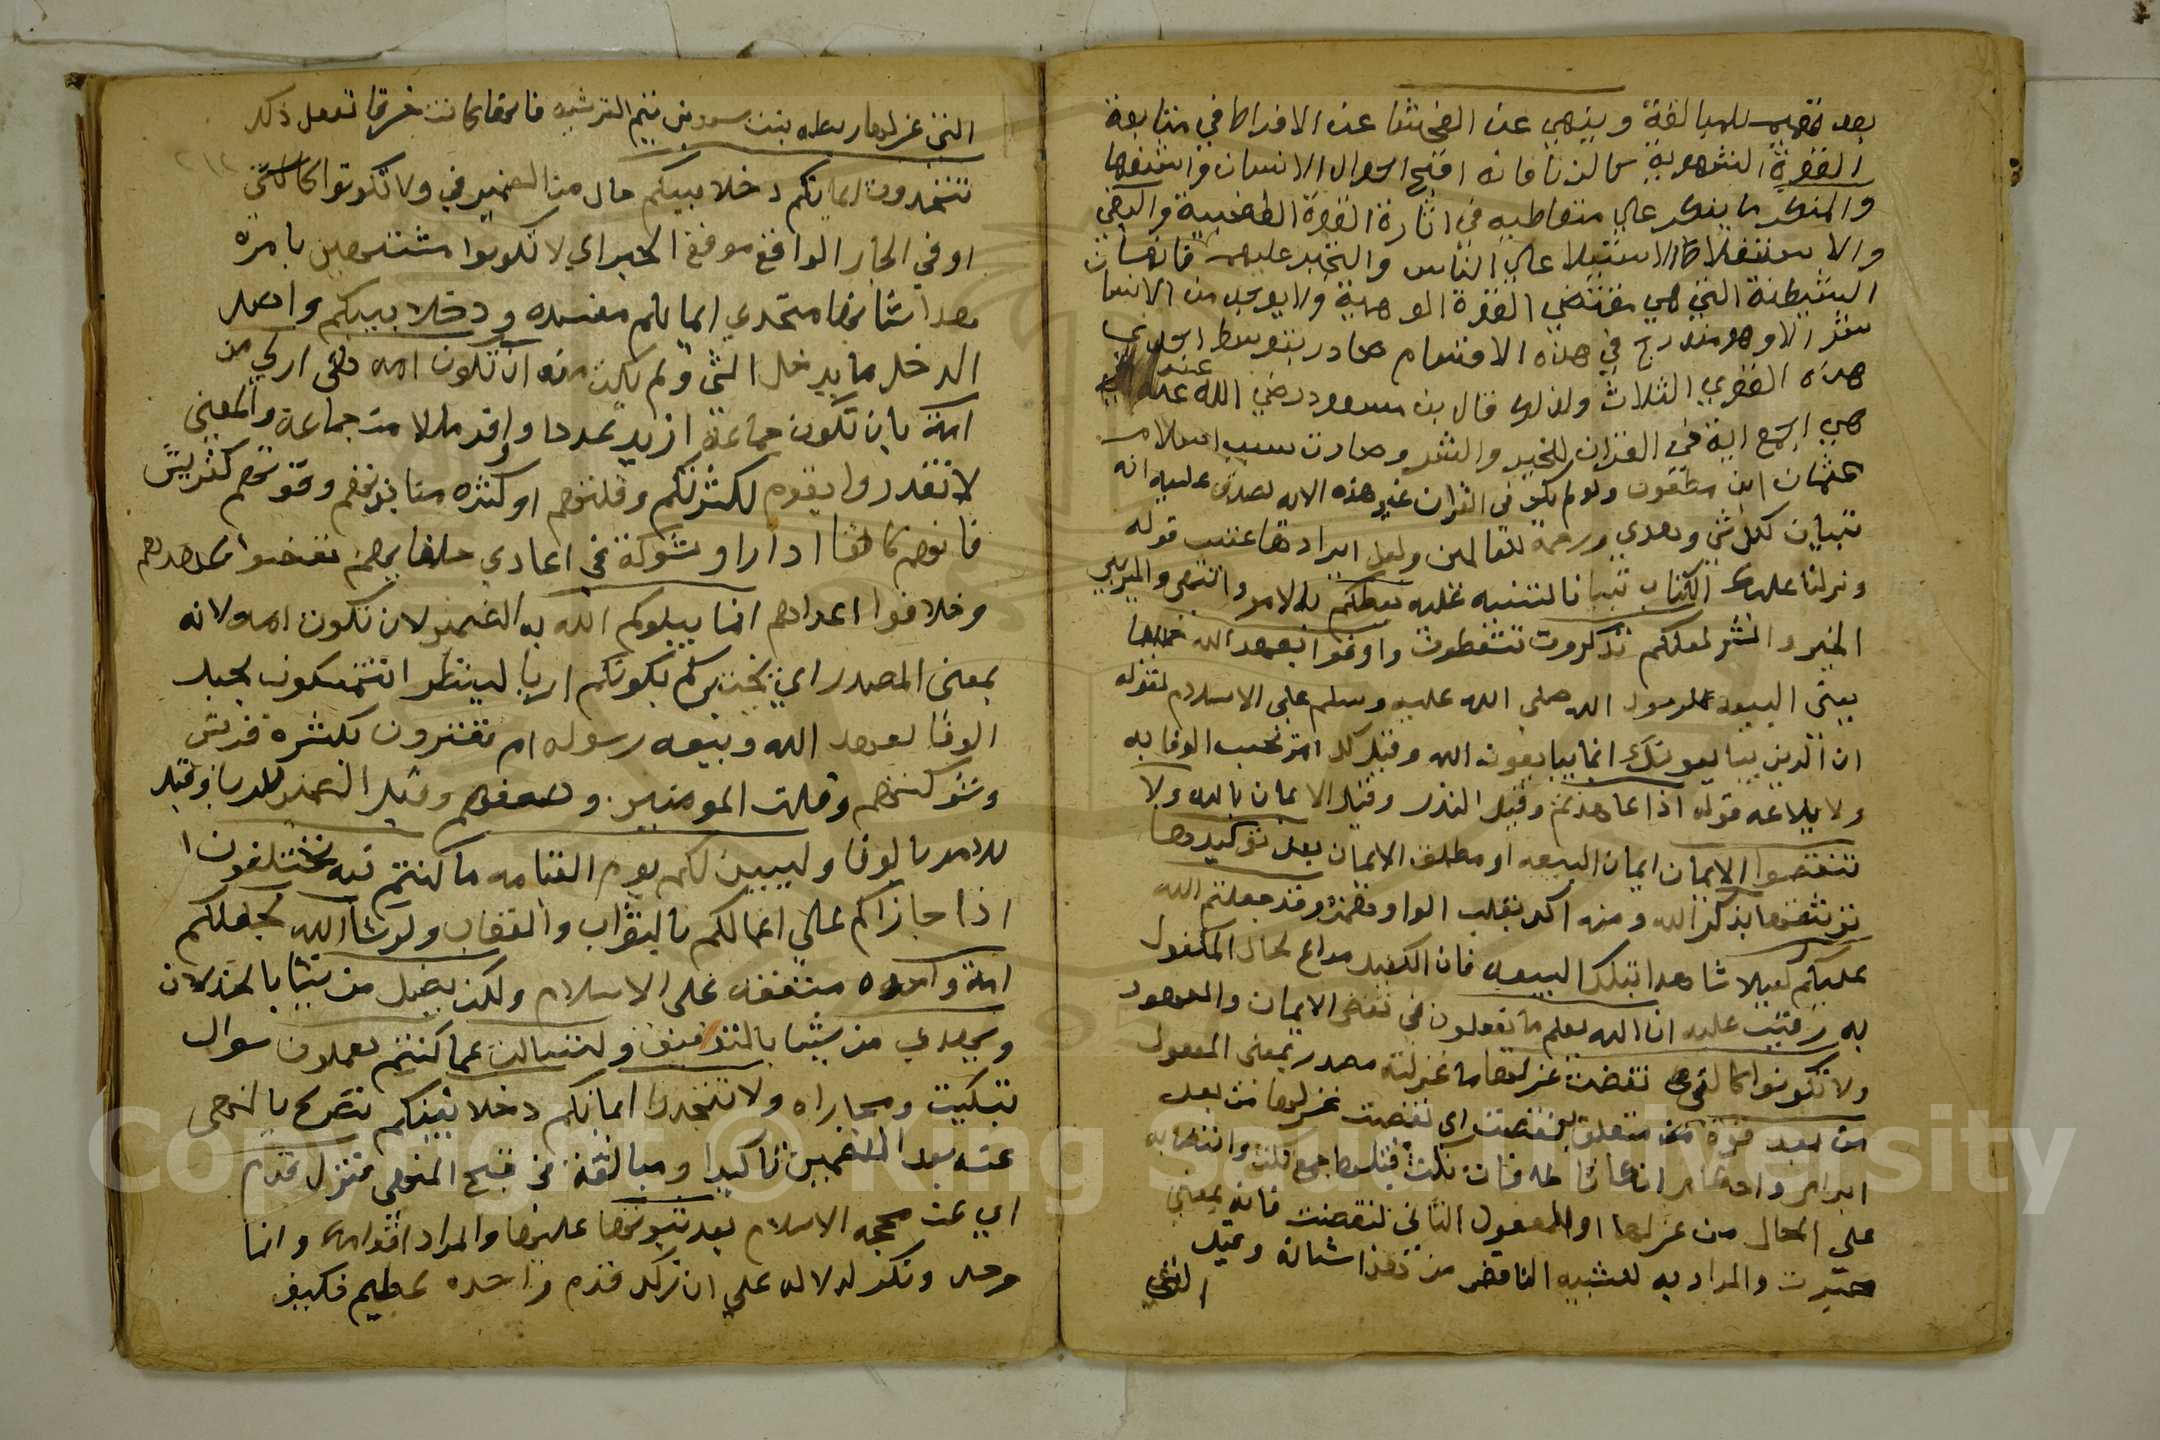 بعد تخصيص للمبالغة وينهي عن الفحشا عن الافراط في متابعة
القوة الشهوية كالزنا فانه اقبح احوال الانسان واشنعها
والمنكر ما ينكر علي متعاطيه في اثارة القوة الغضبية والبغي
والاستعلا والاستيلا علي الناس والتجبر عليهم فانها
الشيطنة التي هي مقتضي القوة الوهمية ولا يوجد من الانسان
شر الا وهو مندرج في هذه الاقسام صادر بتوسط احدي
هذه القوي الثلاث ولذلك قال بن مسعود رضي الله عنه
هي اجمع اية في القران للخير والشر وصارت سبب اسلام
عثمان ابن مظعون ولو لم يكن في القران غير هذه الايه لصدق عليه انه
تبيان لكل شي وهدي ورحمة للعالمين ولعل ايرادها عقيب قوله
ونزلنا عليك الكتاب تبيانا للتنبيه عليه يعظكم بالامر والنهي والميز بين
الخير والشر لعلكم تذكرون تتعظون واوفوا بعهد الله
يعني البيعه لرسول الله صلي الله عليه وسلم علي الاسلام لقوله
ان الذين يبايعونك انما يبايعون الله وقيل كل امر يجب الوفا به
ولا يلايمه قوله اذا عاهدتم وقيل النذر وقيل الايمان بالله ولا
تنقضوا الايمان ايمان البيعه او مطلق الايمان بعد توكيدها
توثيقها بذكر الله ومنه اكد بقلب الواو همزة وقد جعلتم الله
عليكم كفيلا شاهدا بتلك البيعه فان الكفيل مراع لحال المكفول
به رقيب عليه ان الله يعلم ما تفعلون في نقض الايمان والعهود
ولا تكونوا كالتي نقضت غزلها ما غزلته مصدر بمعني المفعول
من بعد قوة متعلق بنقضت اي نقضت غزلها من بعد
ابرام واحكام انكاثا طاقات نكث فتلها جمع نكث وانتصابه
علي الحال من غزلها او المفعول الثاني لنقضت فانه بمعني
صيرت والمراد به تشبيه الناقض من هذا شانه وقيل
التي
التي غزلها ريطه بنت سعد بن تيم القرشيه فانها كانت خرقا تفعل ذلك
تتخذون ايمانكم دخلا بينكم حال من الضمير في ولا تكونوا كالتي
او في الجار الواقع موقع الخبر اي لا تكونوا متشبهين بامرة
هذا شانها متخذي ايمانكم مفسده ودخلا بينكم واصل
الدخل ما يدخل الشي ولم يكن منه ان تكون امه هي اربي من
امة بان تكون جماعة ازيد عددا واوفر مالا من جماعة والمعني
لا تغدروا بقوم لكثرتكم وقلتهم او كثره منابذيهم وقوتهم كقريش
فانهم كانوا اذا راوا شوكة في اعادي حلفايهم نقضوا عهدهم
وحلافوا اعداهم انما يبلوكم الله به الضمير لان تكون امه لانه
بمعني المصدر اي يختبركم بكونكم اربا لينظر اتتمسكون بحبل
الوفا بعهد الله وبيعه رسوله ام تغترون بكثره قريش
وشوكتهم وقلت المومنين وضعفهم وقيل الضمير للربا وقيل
للامر بالوفا وليبينن لكم يوم القيامه ما كنتم فيه تختلفون
اذا جازاكم علي اعمالكم بالثواب والعقاب ولو شا الله لجعلكم
امة واحده متفقه علي الاسلام ولكن يضل من يشا بالخذلان
ويهدي من يشا بالتوفيق ولتسالن عما كنتم تعملون سوال
تبكيت ومجازاه ولا تتخذوا ايمانكم دخلا بينكم تصريح بالنهي
عنه بعد التضمين تاكيدا ومبالغة في قبح المنهي فتزل قدم
اي عن محجه الاسلام بعد ثبوتها عليها والمراد اقدامهم وانما
وحد ونكر للدلاله علي ان زلل قدم واحده عظيم فكيف